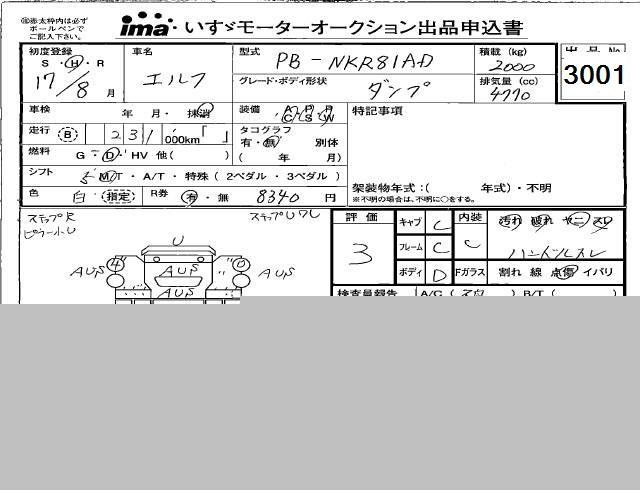 ㊟赤太枠内は必ず
ボールペンで
ご記入下さい。
ima いすゞモーターオークション出品申込書
初度登録 車名 型式 積載 (kg) 出品No
S・H・R エルフ PB-NKR81AD 2000 3001
17/8月 グレード・ボディ形状 ダンプ 排気量 (cc) 4770
車検 年 月・抹消 装備 A/C P/S P/W 特記事項
走行 8 231,000km「 」 タコグラフ
有・無 別体
燃料 G・D・HV 他( ) ( 年 月)
シフト 5 M/T・A/T・特殊(2ペダル・3ペダル)
色 白 (指定) R券 有・無 8340円 架装物年式:( 年式)・不明
※不明の場合は、不明に○をする。
ステップR ステップUワレ 評価 キャブ C 内装 汚れ 破れ ヤニ スレ
ピラー小U U 3 フレーム C C ハンドルスレ
AUS 4 AUS 0 AUS ボディ D Fガラス 割れ 線 点傷 イバリ
AUS
検査員報告 A/C( B/T(